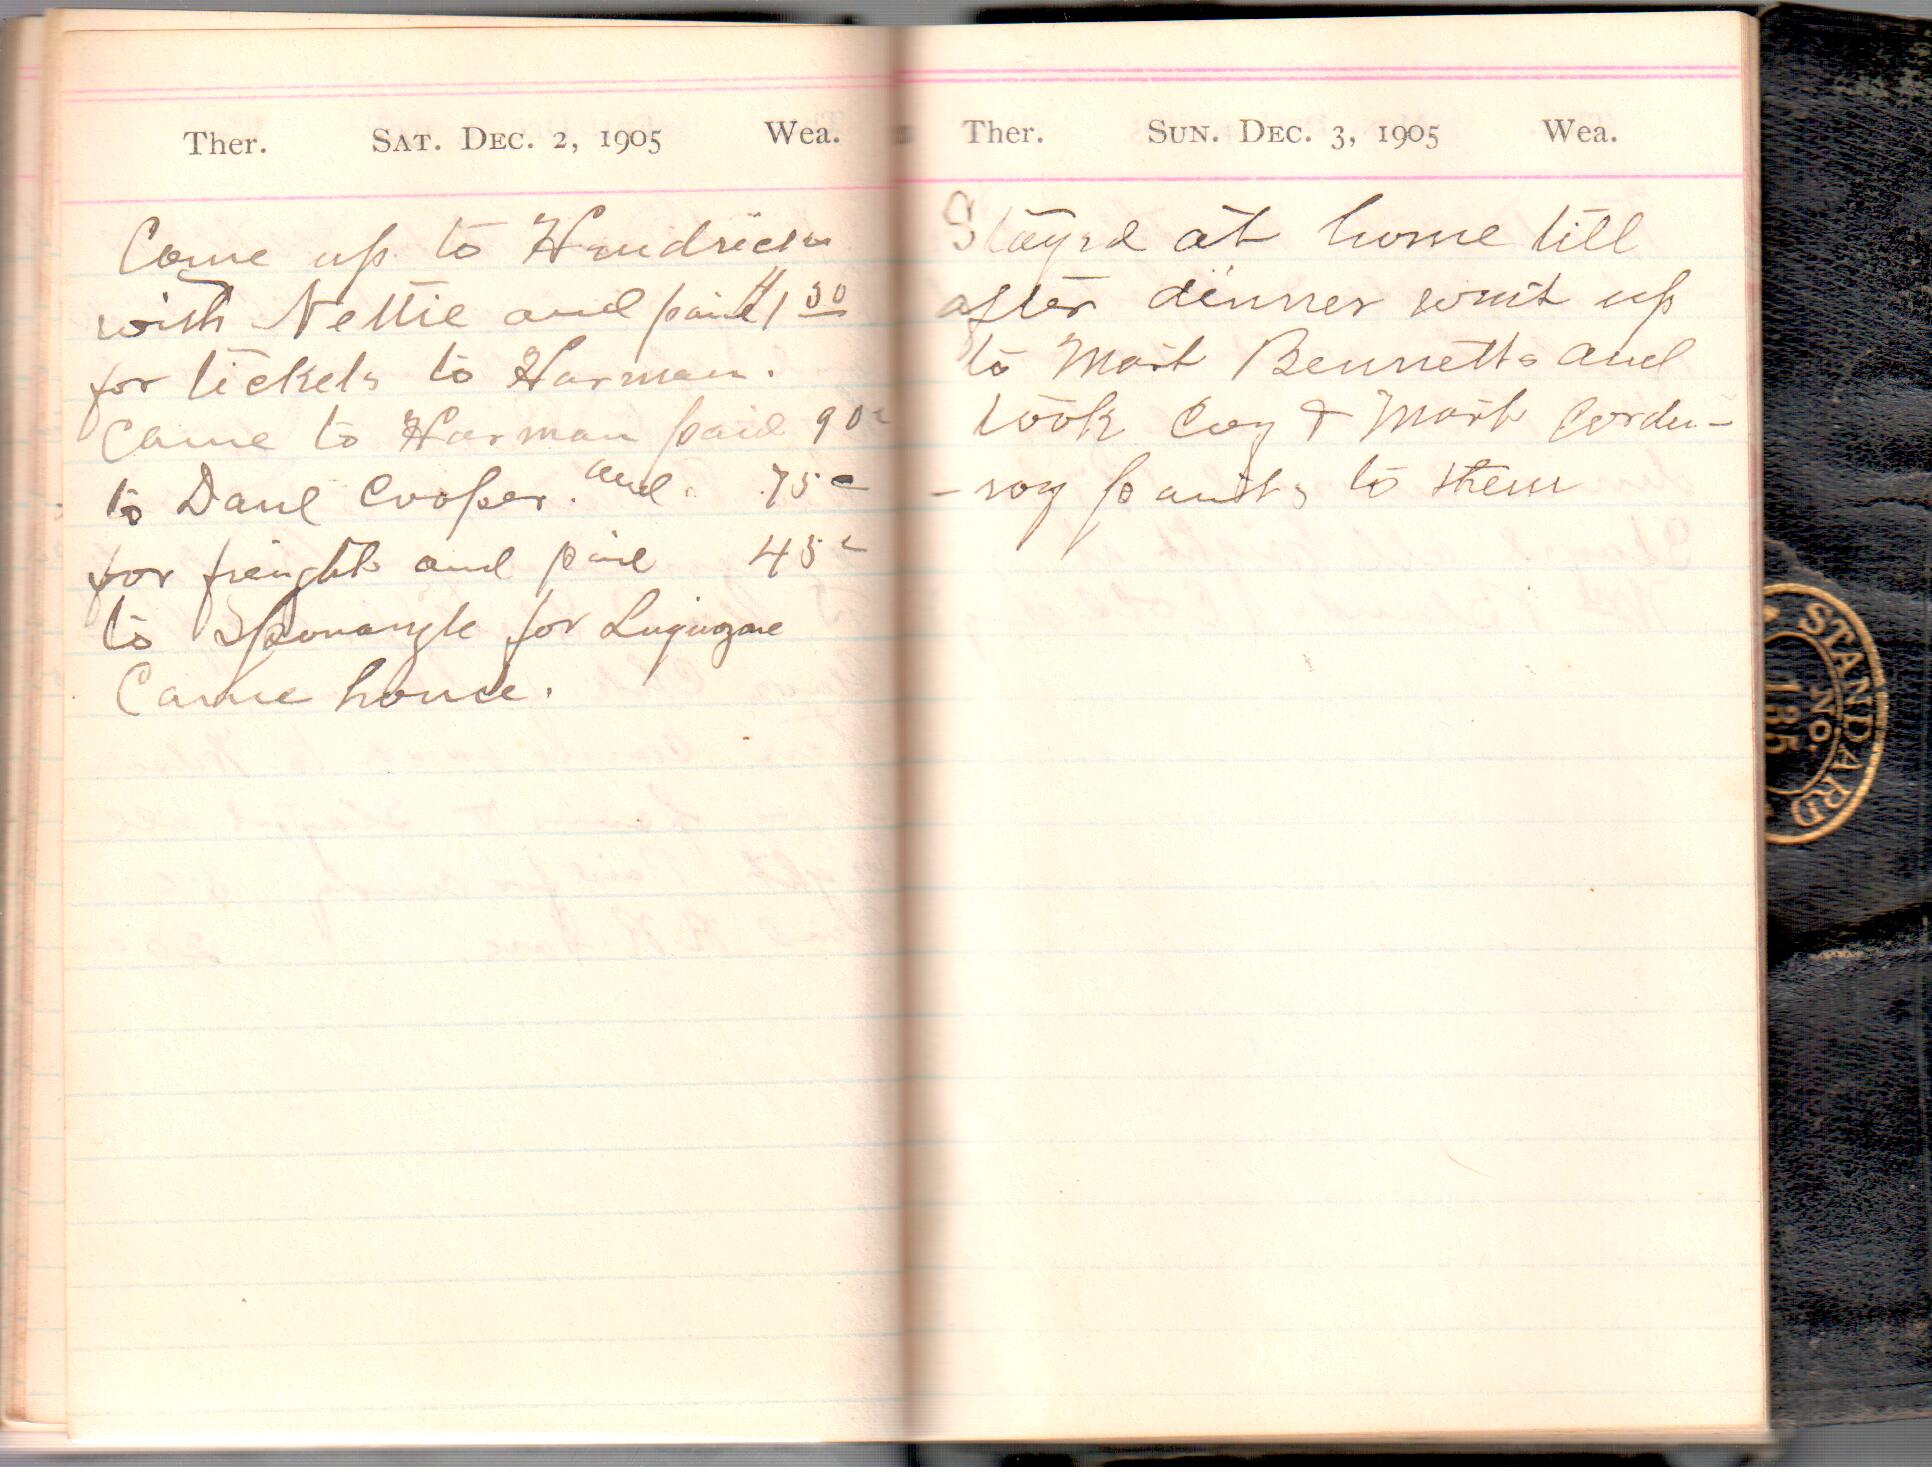 Ther. SAT. DEC. 2, 1905 Wea.
Come up to Hendricks
with Nettie and paid 1 50
for tickets to Harman.
Came to Harman paid 90c
to Dane Cooper. and. 75c
for freight and paid 45c
to Sponaugle for
Came home.
Ther. SUN. DEC. 3, 1905 Wea.
Stayed at home till
after dinner went up
to Mart Bennetts and
took Coy & Mark Cordu-
-roy pants to them
STANDARD
NO.
185